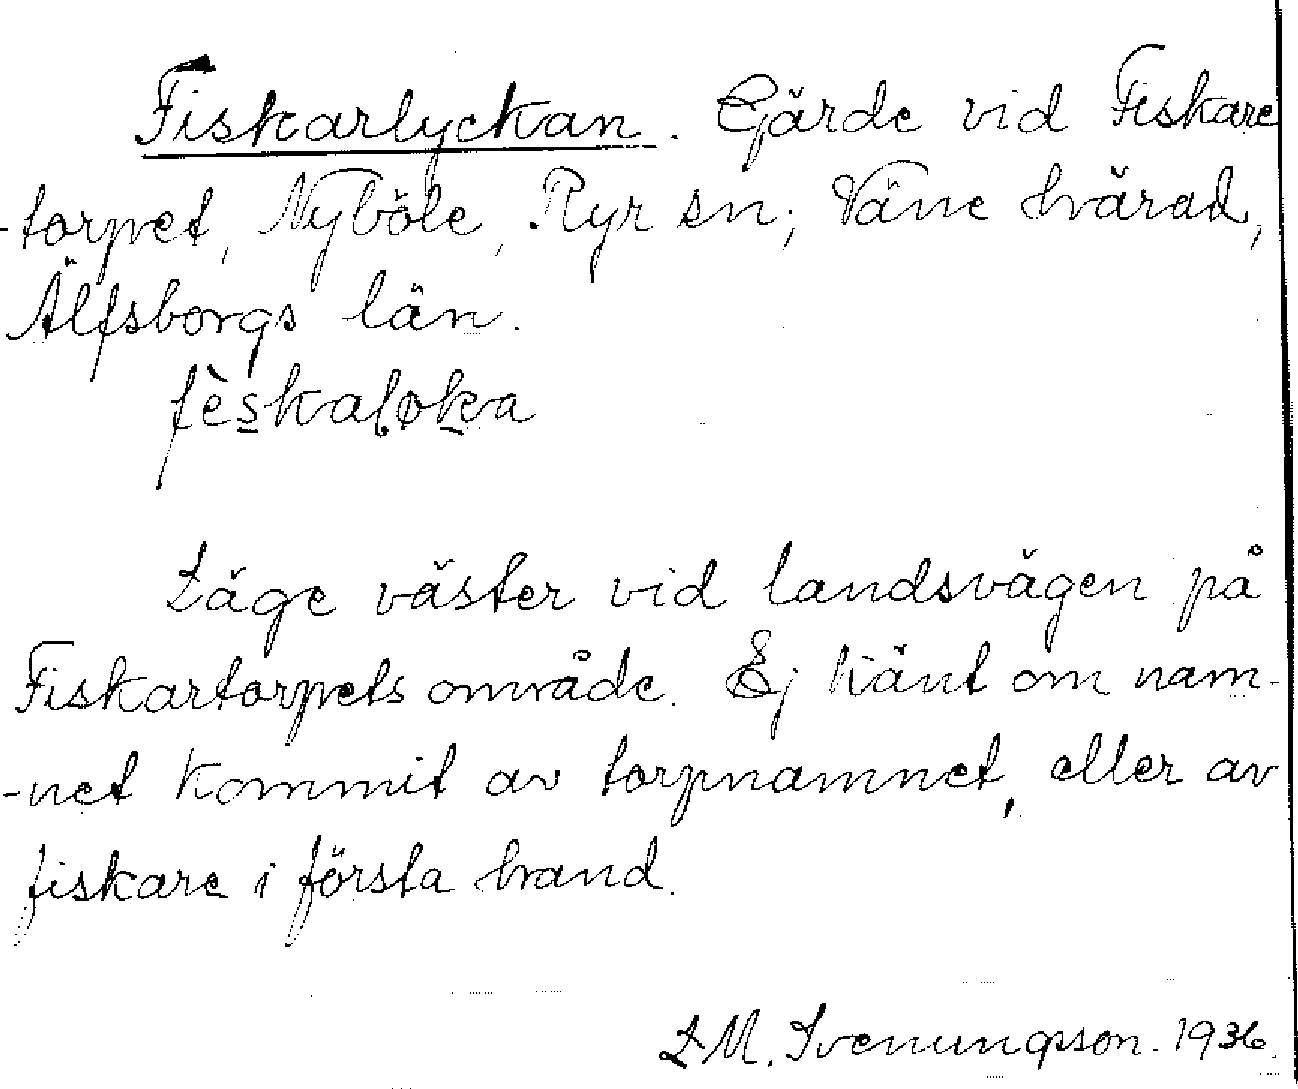 Fiskarlyckan. Gärde vid Fiskare
-torpet, Nyböle, Ryr sn, Väne härad,
Älfsborgs län.
fèskaḷøka
Läge väster vid landsvägen på
Fiskartorpets område. Ej känt om nam-
-net kommit av torpnamnet, eller av
fiskare i första hand.
L M. Svenungsson. 1936.